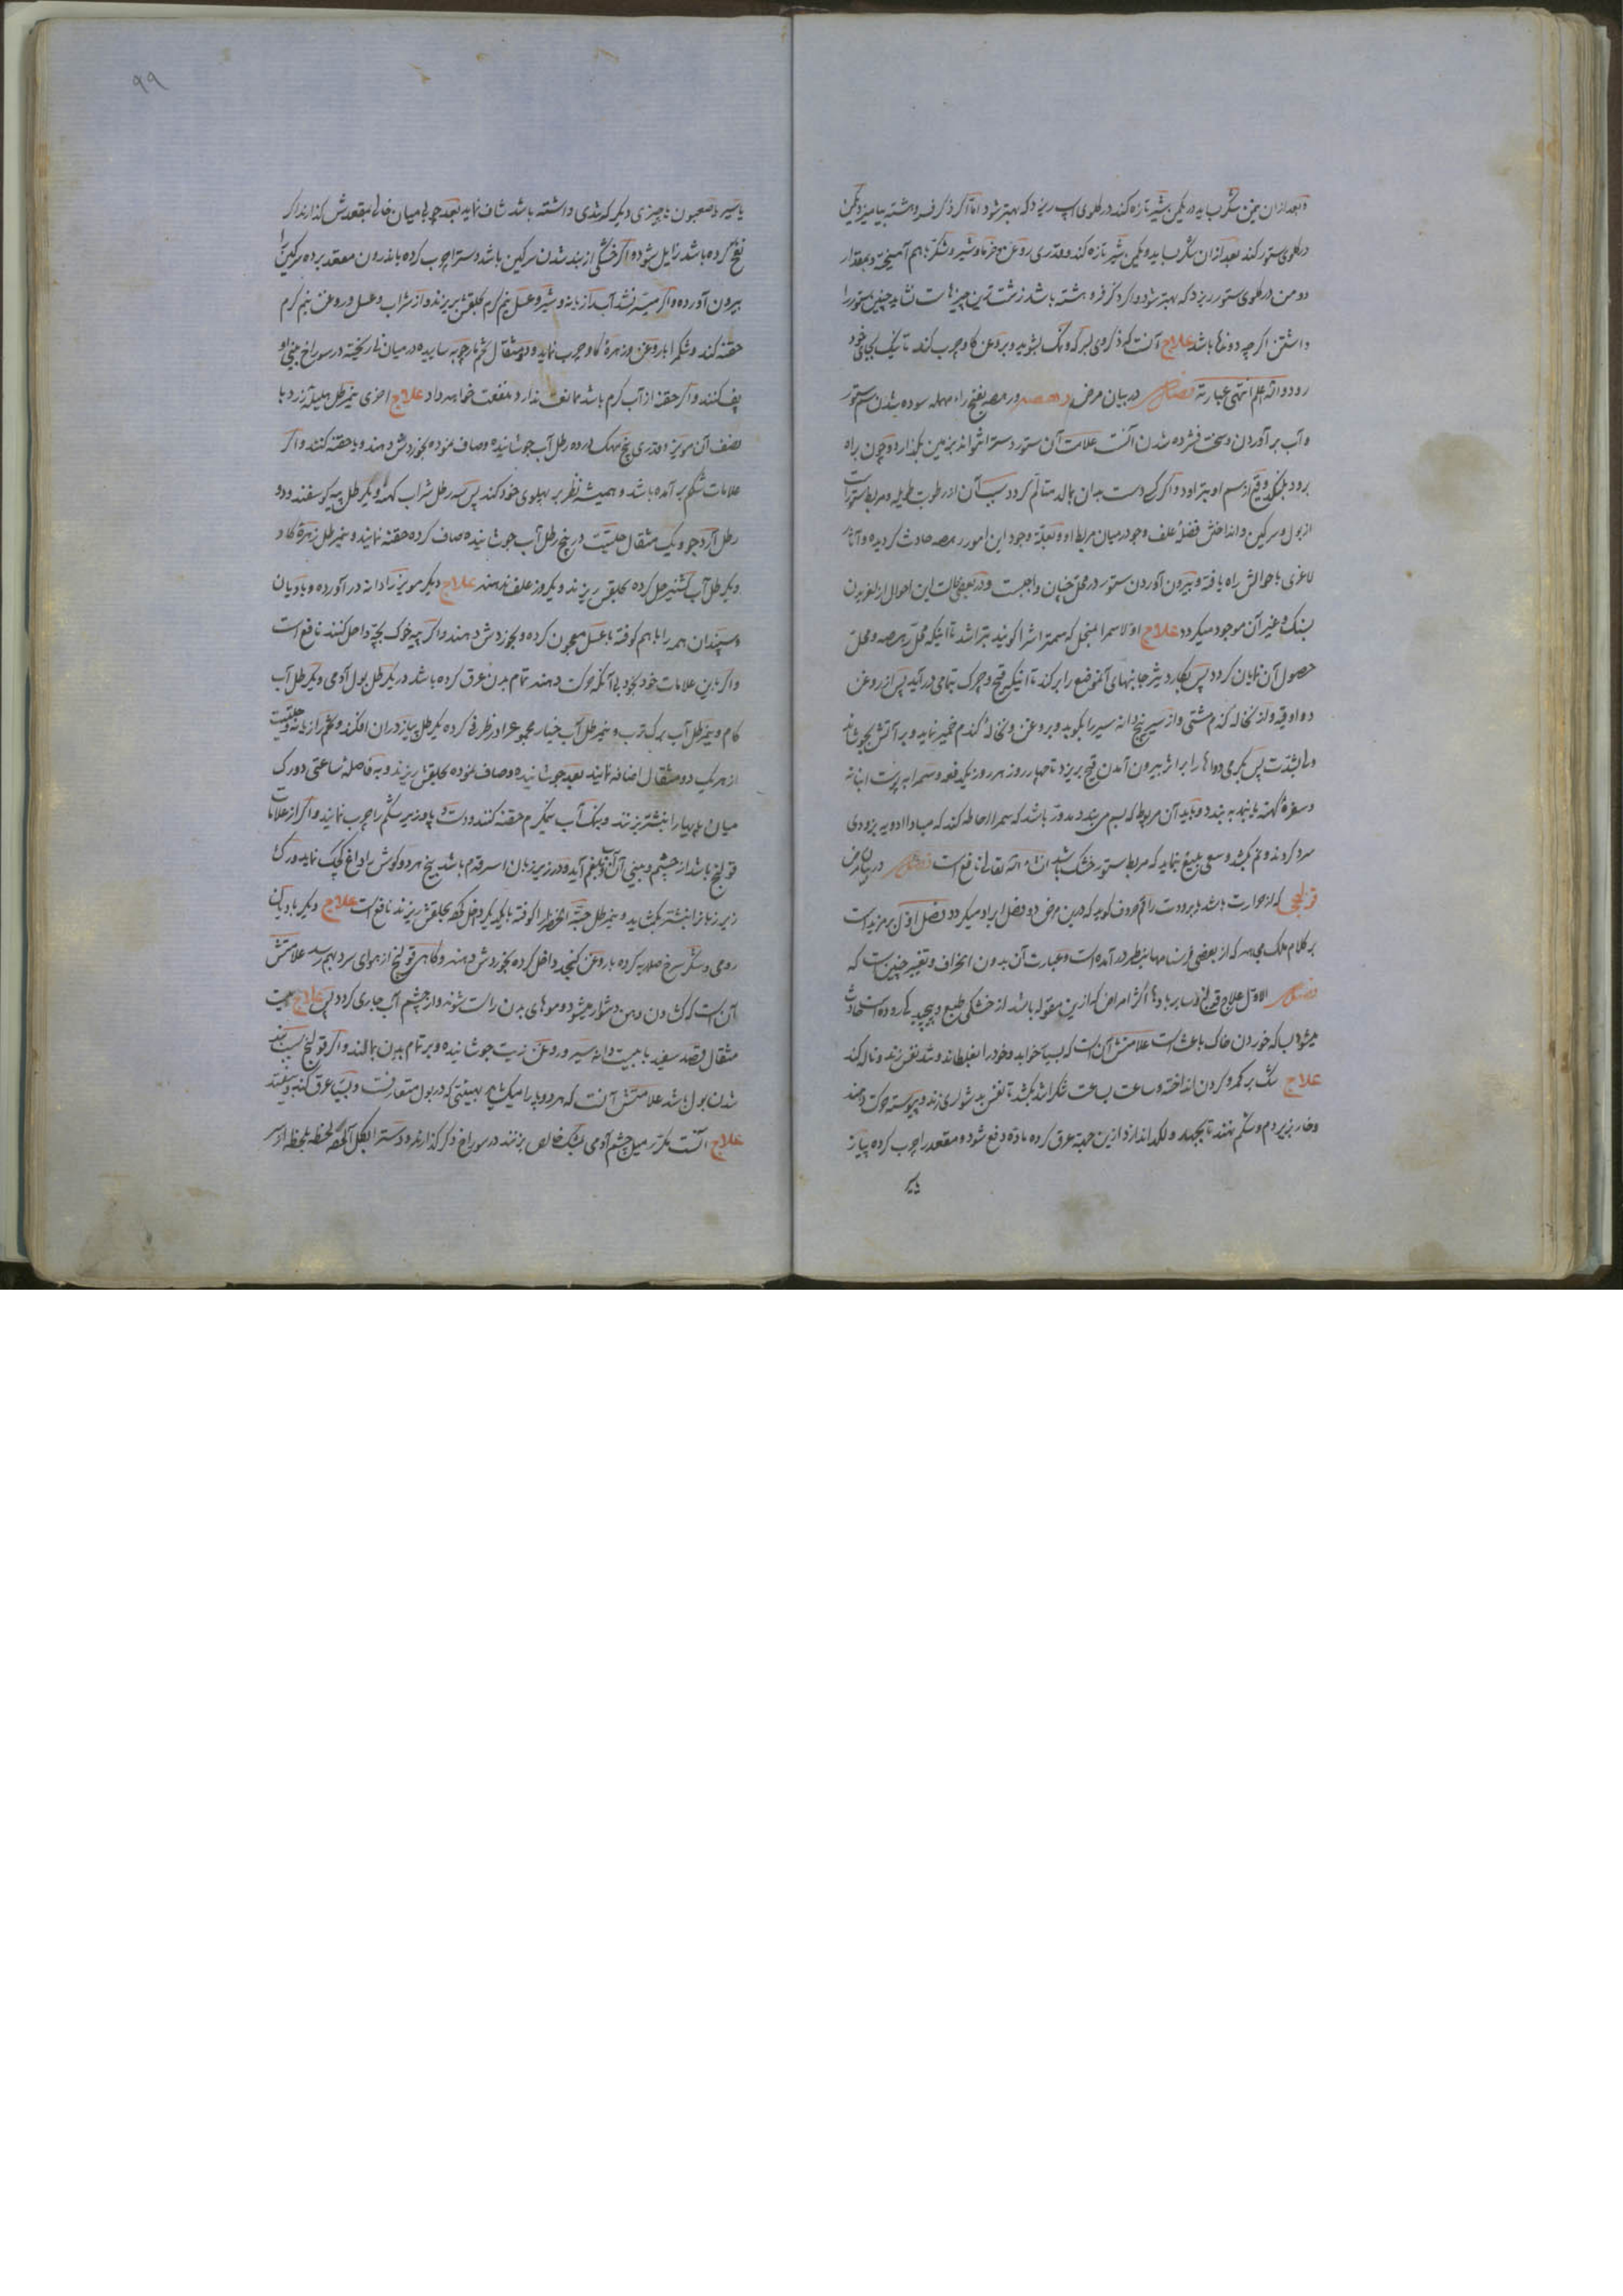 وبعد ازان
در گلوی ستور کند بعد ازان شکر بساید ویکمن شیر تازه کند وقدری روغن وخرما وشیر وشکر باهم آمیخته وبمقدار
دو من در گلوی ستور ریزد که بهتر شود واگر ذکر فروهشته باشد زشت ترین چیزهاست نشاید چنین ستور را
داشتن اگر چه دونده باشد علاج آنست که ذکر وی بسرکه ونمک بشوید وبروغن گاو چرب کند تا نیک بجای خود
رود والله اعلم انتهی عبارته فصل در بیان مرض رهصه ورهصه بفتح راء مهمله سوده شدن سم ستور
وآب برآوردن وسخت فشرده شدن آنست علامت آن ستور دست را نتواند بزمین بگذارد وچون راه
رود بلنگد وقیح از سم او بتراود واگر کسی دست بدان بمالد متألم گردد سبب آن از رطوبت طویله ومربط ستورانست
از بول وسرگین وانداختن فضلهٔ علف وجو در میان مربط او وبعلة وجود این امور رهصه حادث گردیده وآثار
لاغری باحوالش راه یافته وبیرون آوردن ستور در محل چنان واجبست ودر بعضی حالت این احوال از لغزیدن
بسنگ وغیر آن موجود میگردد علاج اولا سم را بمنجل که سمتراش را گویند بتراشد تا اینکه محل رهصه ومحل
حصول آن نمایان گردد پس بکارد تیز جانبهای آنموضع را برکند تا اینکه قیح وچرک بتمامی درآید پس از روغن
دو اوقیه واز نخاله گندم مشتی واز سیر پنج دانه سیر را بکوبد وبروغن ونخالهٔ گندم خمیر نماید وبر آتش بجوشاند
پس بگرمی دواها را بر اثر بیرون آمدن قیح بریزد تا چهار روز هر روز یکدفعه وسم را بپوست انبانه
وسفرهٔ کهنه یا نمد به بندد وباید آن مربوط که بسم می بندد مدور باشد که سم را احاطه کند که مبادا ادویه بزودی
سرد گردند ونم بکشد وسعی بلیغ نماید که مربط ستور خشک باشد ان شاء الله تعالی نافع است فصل در بیان مرض
قولنجی که از حرارت باشد یا برودت راقم حروف گوید که درین مرض دو فصل ایراد میگردد فصل اول
بر کلام ملک مجاهد که از بعضی فرسنامها بنظر درآمده است وعبارت آن بدون انحراف وتغییر چنین است که
فصل الاول علاج قولنج اسب بر بادها اکثر امراض که ازین مقوله باشد از خشکی طبع وپیچیدگی روده است حادث
میشود بسکه خوردن خاک باعث است علامتش آن است که بسیار خوابد وخود را بغلطاند وتند نفس زند وناله کند
علاج تنگ بر کمر وگردن انداخته وساعت بساعت تنگ را بکشد تا نفس بدشواری زند وپیوسته حرکت دهند
وخار بزیر دم وشکم نهند تا بجهد ولگد اندازد ازین جهة عرق کرده ماده دفع شود ومقعد را چرب کرده پیاز
یا سیر
۹۹
یا سیر وصعبون یا چیزی دیگر که تندی داشته باشد شاف نماید بعد چوبی میان خالی بمقعدش گذارند اگر
نفخ کرده باشد زایل شود واگر خشکی از بند شدن سرگین باشد دست را چرب کرده باندرون مقعد برده سرگین را
بیرون آورده واگر میسر نشد آب رازیانه وشیر وعسل نیم گرم بحلقش بریزند واز شراب وعسل وروغن نیم گرم
حقنه کند وشکم را با روغن وزهرهٔ گاو چرب نماید ودو مثقال تخم مارچوبه ساییده در میان نی ریخته در سوراخ بینی او
پف کنند واگر حقنه از آب گرم باشد مانعی ندارد منفعت خواهد داد علاج اخری نیمرطل هلیله زرد با
نصف آن مویز وقدری بیخ مهک در ده رطل آب جوشانیده وصاف نموده بخوردش دهند وبا حقنه کنند واگر
علامات شکم برآمده باشد وهمیشه نظر بر پهلوی خود کند پس سه رطل شراب کهنه ویکرطل پیه گوسفند ودو
رطل آرد جو ویک مثقال حلتیت در پنج رطل آب جوشانیده صاف کرده حقنه نمایند ونیمرطل زهرهٔ گاو
در یکرطل آب گشنیز حل کرده بحلقش ریزند ویکروز علف ندهند علاج دیگر مویز را دانه درآورده وبا دیان
وسپندان همه را باهم کوفته با عسل معجون کرده وبخوردش دهند واگر پیه خوک بچه داخل کنند نافع است
واگر باین علامات خود بخود بی آنکه حرکت دهند تمام بدن عرق کرده باشد در یکرطل بول آدمی ویکرطل آب
کامه ونیمرطل آب برگ ترب ونیمرطل آب خیار مجموع را در ظرفی کرده یکرطل پیاز در ان افکنند وتخم رازیانه وحلتیت
از هر یک دو مثقال اضافه نمایند بعد جوشانیده وصاف نموده بحلقش ریزند وبه فاصلهٔ ساعتی دو رگ
میان پاها را نشتر بزنند وبنمک آب نیمگرم حقنه کنند ودست وپا وزیر شکم را چرب نمایند واگر از علامات
قولنج باشد از چشم وبینی آن آب وبلغم آید ودر زیر زبان باشد بیخ هر دو گوش را داغ کوچک نماید ورگ
زیر زبانرا نشتر بکشاید ونیمرطل حبة الخضرا کوفته با یکدیگر داخل کرده بحلقش ریزند نافع است علاج دیگر بادیان
رومی وشکر سرخ صلایه کرده با روغن کنجد داخل کرده بخوردش دهند وگاهی قولنج از هوای سرد بهم رسد علامتش
آن است که گشادن دهن دشوار میشود وموهای بدن راست شوند واز چشم آب جاری گردد پس علاج بیست
مثقال سفید با بیست دانه سیر وروغن زیت جوشانیده وبر تمام بدن بمالند واگر قولنج بسبب بند
شدن بول باشد علامتش آنست که هر دو پا را میکشد بهیئتی که در بول متعارفست وبسیار عرق کند وبیفتد
علاج آنست مکرر میل چشم آدمی بمشک خالص بزنند در سوراخ ذکر گذارند ودست را لحظه بلحظه از سر